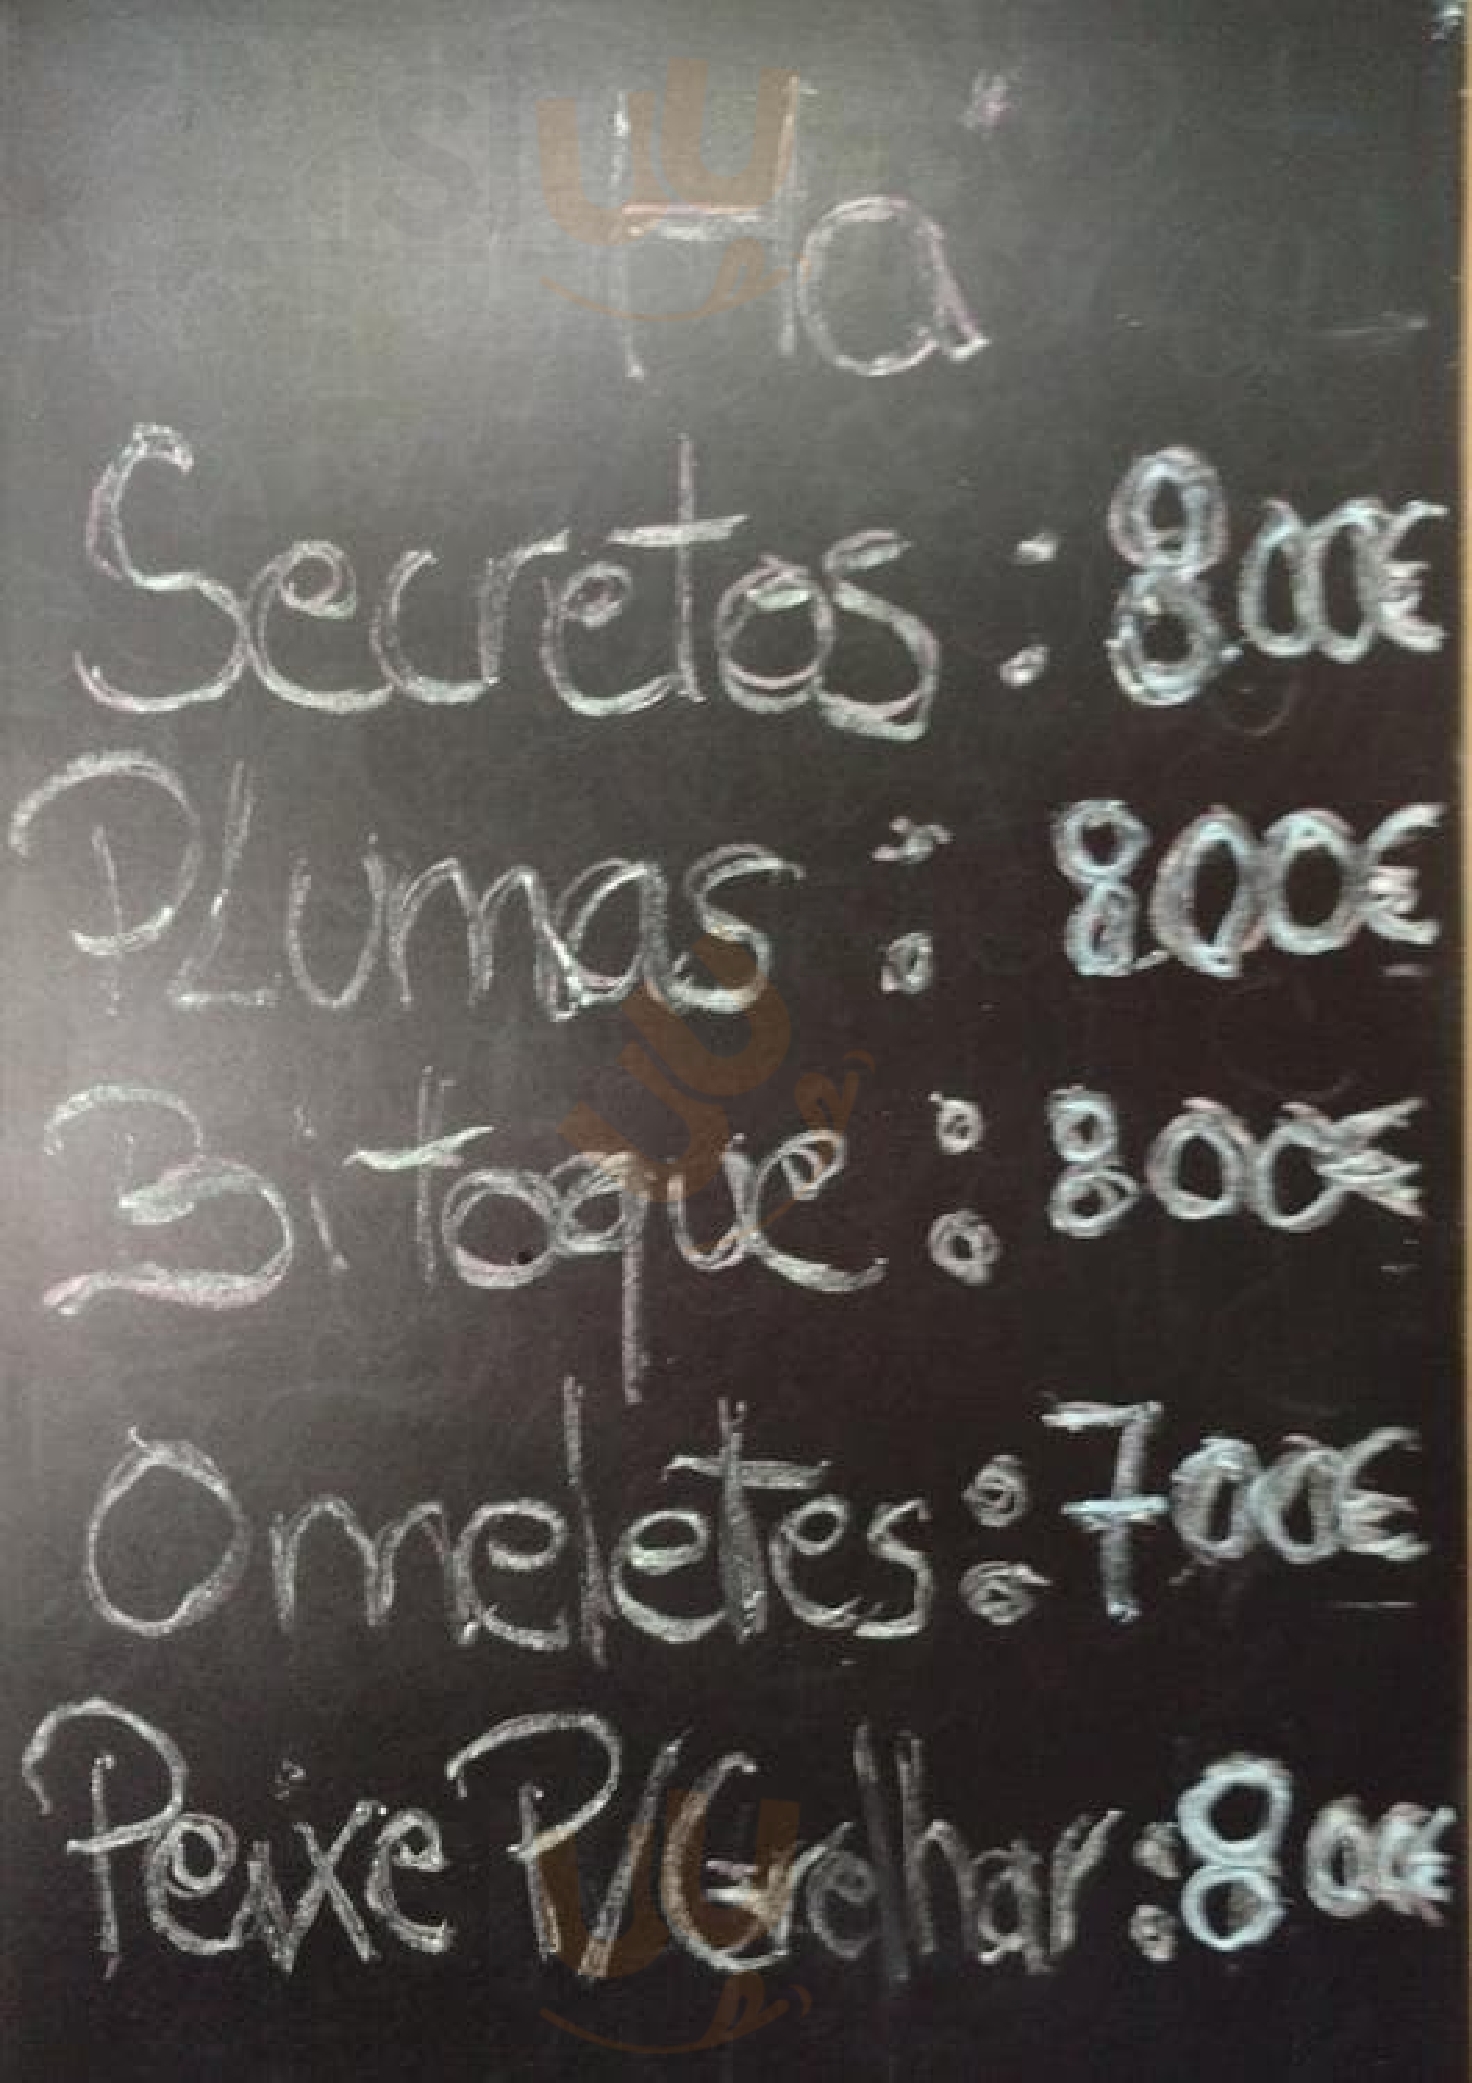 Ha
Secretos : 800€
PLumas : 800€
Bitoque : 800€
Omeletes : 700€
Peixe P/Grelhar : 800€